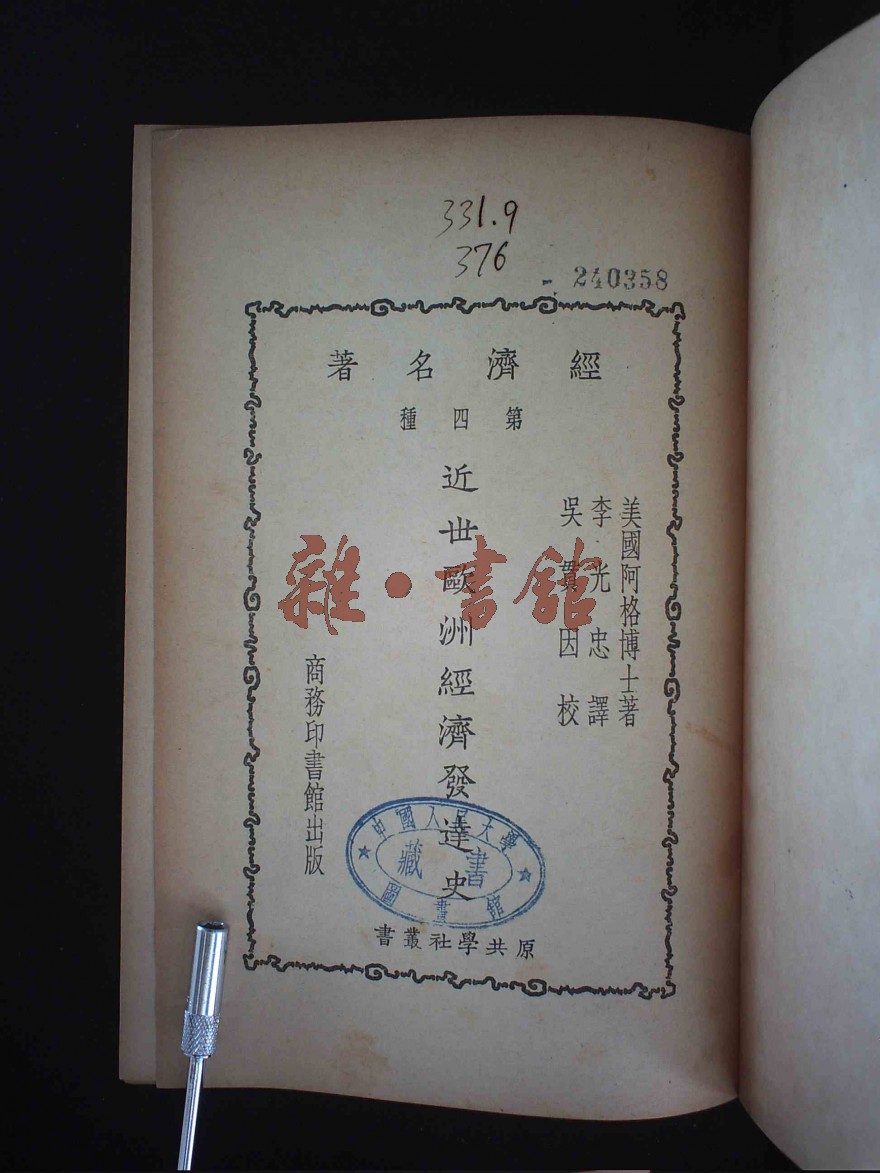 331.9
376
240358
經濟名著
第四種
美國阿格博士著
李光忠譯
吳貫因校
近世歐洲經濟發達史
商務印書館出版
原共學社叢書
中國人民大學
藏書
圖書館
雜·書館